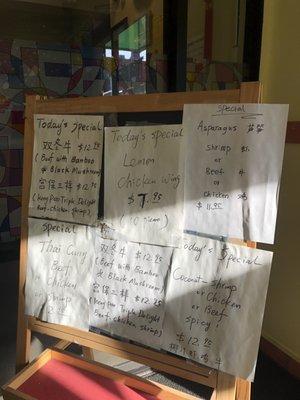 Today's Special
双冬牛 $12.95
(Beef with Bamboo
& Black Mushroom)
宫保三样 $12.95
(Kung Pao Triple Delight
Beef-chicken shrimp)
Today's Special
Lemon
Chicken Wing
$7.95
(10 items)
Special
Asparagus
Shrimp
or
Beef 牛
or
Chicken 鸡
$11.95
Special
Thai Curry
Beef
Chicken
or Shrimp
双冬牛 $12.95
(Beef with Bamboo
& Black Mushroom)
宫保三样 $12.95
(Kung Pao Triple Delight
Beef, chicken shrimp)
Today's Special
Coconut-Shrimp
or Chicken
or Beef
Spicy!
$12.95